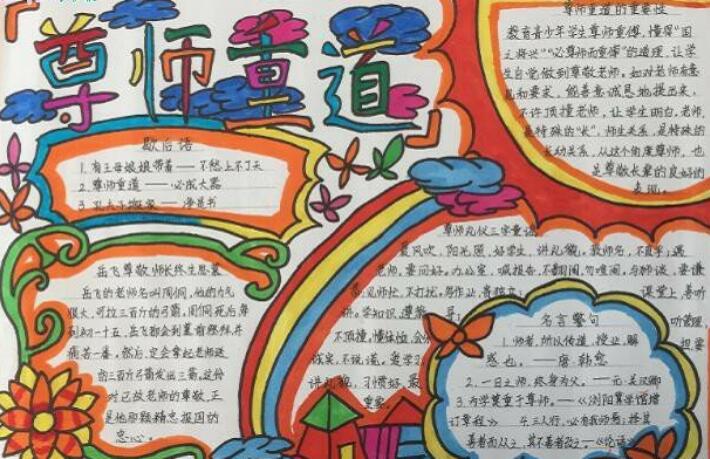 尊师重道
歇后语
1. 有王母娘娘带着——不愁上不了天
2. 尊师重道——必成大器
3. 孔夫子搬家——净是书
尊师重道的重要性
教育青少年学生尊师重傅，懂得“国
之将兴”“必尊师而重傅”的道理，让学
生自觉做到尊敬老师。如对老师有意
见和要求，能善意诚恳地提出来，
不许顶撞老师，让学生明白，老师
是特殊的“长”，师生关系，是特殊的
长幼关系，从这个角度尊师，也
是尊敬长辈的良好的
表现。
岳飞尊敬师长终生思慕
岳飞的老师名叫周侗，他的力气
很大，可拉三百斤的弓箭，周侗死后每
到初一十五，岳飞都会到墓前祭拜，并
痛苦一番，然后，定会拿起老师送
的三百斤弓箭发出三箭，这份
对已故老师的尊敬，正
是他那颗精忠报国的
忠心。
尊师礼仪三字童谣
夏风吹，阳光照，好学生，讲礼貌。教师名，不直呼；遇
老师，要问好。办公室，喊报告，不翻闹，勿喧闹。与师谈，要谦
见师忙，不打扰。写作业，贵独立； 课堂上，善听
讲。学知识，遵
不顶撞，懂体恤，会
诚实，不说谎。爱学习
讲礼貌，习惯好，最
重要。
听管理
名言警句
1. 师者，所以传道，授业，解
惑也。——唐·韩愈
2. 一日之师，终身为父。——元·关汉卿
3. 为学莫重于尊师。——《浏阳算学馆增
订章程》 4. 三人行，必有我师焉；择其
善者而从之，其不善者改之。——《论语》